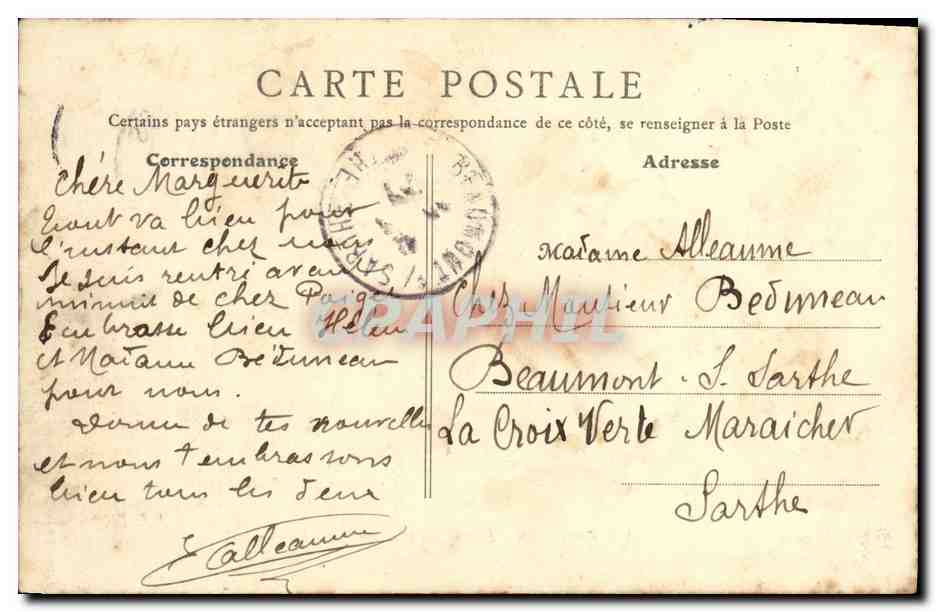 CARTE POSTALE
Certains pays étrangers n'acceptant pas la correspondance de ce côté, se renseigner à la Poste
Correspondance
Adresse
Chére Marguerite
tout va bien pour
l'instant chez nous
Je suis rentré avant
minuit de chez
Embrasse bien Hélène
et Madame Béduneau
pour nous.
donne de tes nouvelles
et nous t'embrassons
bien tous les deux
Alleaume
BEAUMONT S/ SARTHE
Madame Alleaume
Chez Monsieur Beduneau
Beaumont. S. Sarthe
La Croix Verte Maraicher
Sarthe
CPAPHIL